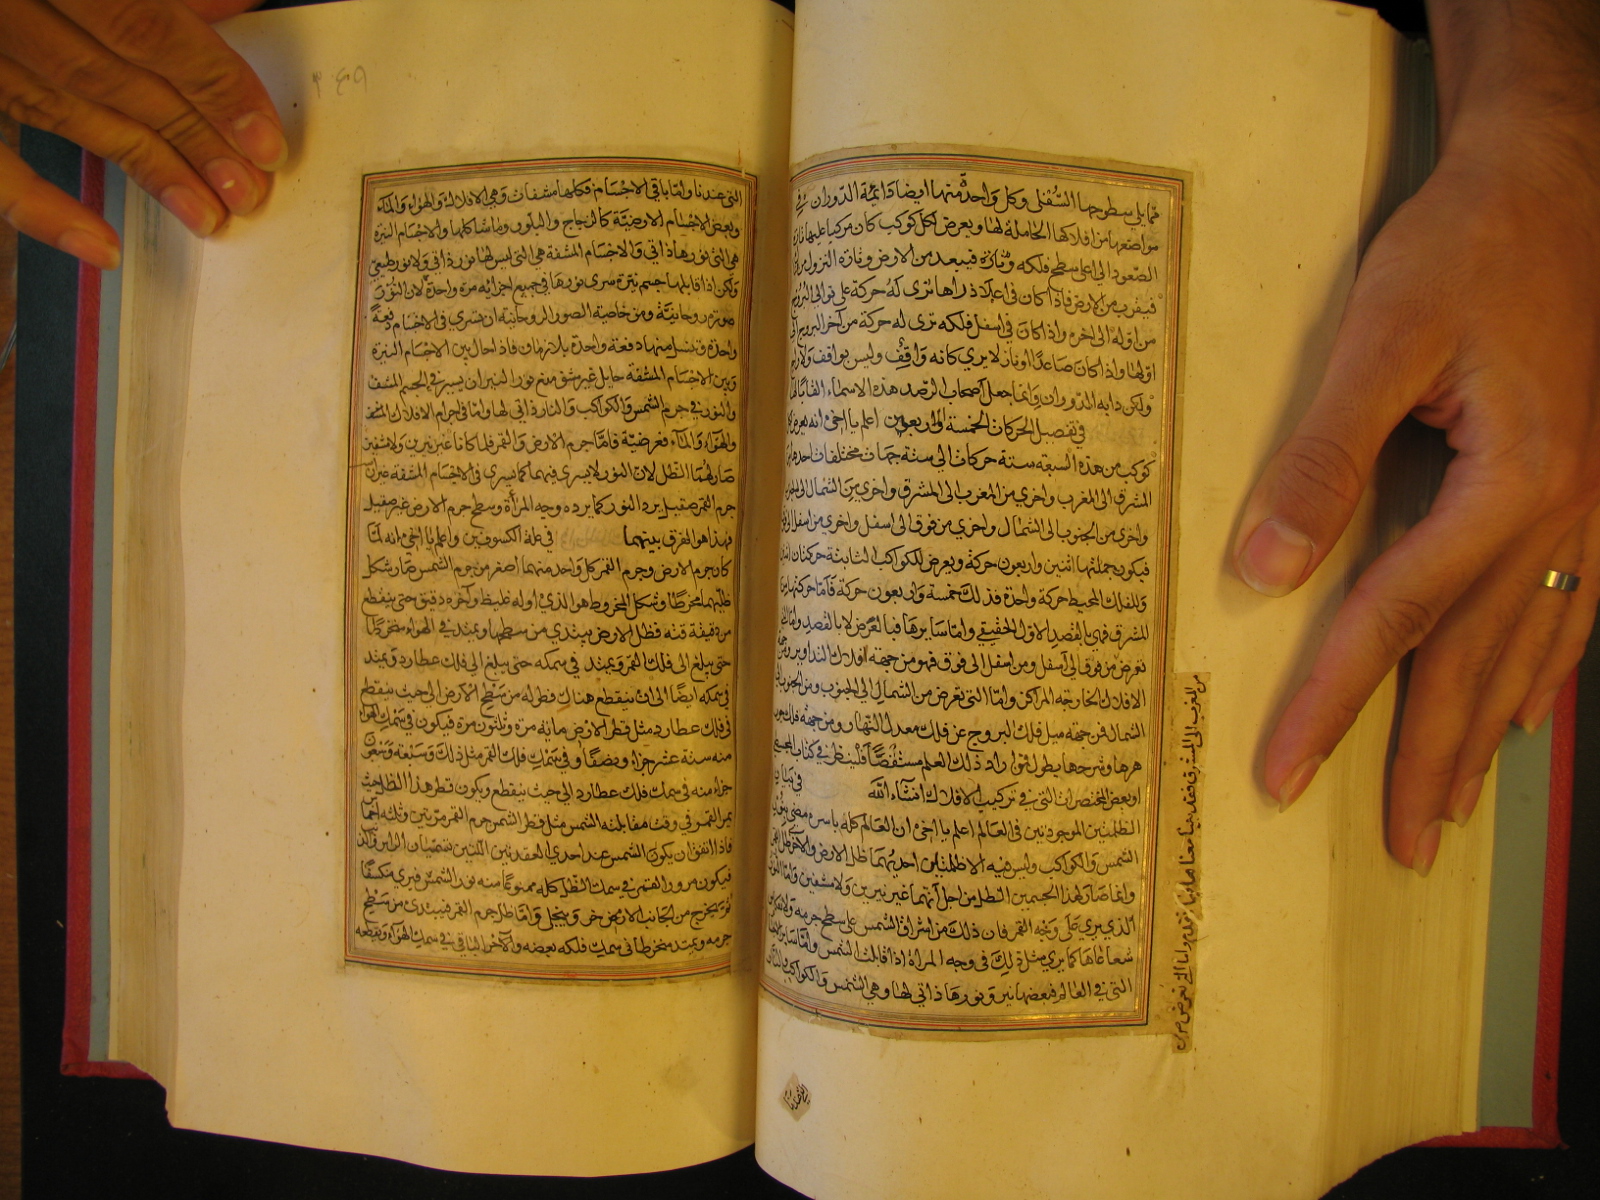 مما يلي سطوحها السفلى وكل واحدة منها ايضا دائمة الدوران في
مواضعها من افلاكها الحاملة لها ويعرض لكل كوكب كان مركبا عليها تارة
الصعود الى اعلى سطح فلكه وتارة فيبعد من الارض وتارة النزول
فيقرب من الارض فاذا كان في اعلا ذراها ترى له حركة على توالي البروج
من اوله الى اخره واذا كان في اسفل فلكه ترى له حركة من آخر البروج الى
اولها واذا كان صاعدا او نازلا يرى كانه واقف وليس بواقف ولا راجع
ولكن دابه الدوران وانما جعل اصحاب الرصد هذه الاسماء القابا لها
في تفصيل الحركات الخمسة والاربعين اعلم يا اخي انه يعرض لكل
كوكب من هذه السبعة ستة حركات الى ستة جهات مختلفات احدها من
المشرق الى المغرب واخرى من المغرب الى المشرق واخرى من الشمال الى الجنوب
واخرى من الجنوب الى الشمال واخرى من فوق الى اسفل واخرى من اسفل الى فوق
فيكون جملتها اثنين واربعون حركة ويعرض للكواكب الثابتة حركتان
وللفلك المحيط حركة واحدة فذلك خمسة واربعون حركة فاما حركتها من
المشرق فهي بالقصد الاول الحقيقي واما سايرها فبالعرض لا بالقصد واما التي
تعرض من فوق الى اسفل ومن اسفل الى فوق فهو من جهة افلاك التداوير ومن جهة
الافلاك الخارجة المراكز واما التي تعرض من الشمال الى الجنوب ومن الجنوب الى
الشمال فمن جهة ميل فلك البروج عن فلك معدل النهار ومن جهة فلك
وشرحها يطول فمن اراد ذلك العلم مستقصا فلينظر في كتاب المجسطي
او بعض المختصرات التي في تركيب الافلاك ان شاء الله في بيان
الظلمتين الموجودتين في العالم اعلم يا اخي ان العالم كله باسره مضيء بنور
الشمس والكواكب وليس فيه الا ظلمتين احديهما ظل الارض والاخرى ظل القمر
وانما صار لهذا الجسمين الظل من اجل انهما غير نيرين ولا مشفين واما النور
الذي يرى على وجه القمر فان ذلك من اشراق الشمس على سطح جرمه
شعاعاها كما يرى مثل ذلك في وجه المراة اذا قابلت الشمس واما ساير الاجسام
التي في العالم فبعضها نير ونورها ذاتي لها وهي الشمس والكواكب والنار
من المغرب الى المشرق فقد بينا معناها فيما تقدم واما التي تعرض من
التي عندنا واما باقي الاجسام فكلها مشفات وهي الافلاك والهواء والماء
وبعض الاجسام الارضية كالزجاج والبلور وما شاكلها والاجسام النيرة
هي التي نورها ذاتي والاجسام المشفة هي التي ليس لها نور ذاتي ولا نور طبيعي
ولكن اذا قابلها جسم نير سرى نورها في جميع اجزائه مرة واحدة لان النور
صورة روحانية ومن خاصية الصور الروحانية ان يسري في الاجسام دفعة
واحدة وتنسل منها دفعة واحدة بلا زمان فاذا حال بين الاجسام النيرة
وبين الاجسام المشفة حايل غير مشف منع نور النير ان يسير في الجسم المشف
والنور في جرم الشمس والكواكب والنار ذاتي لها واما في اجرام الافلاك المشفة
والهواء والماء فعرضية فاما جرم الارض والقمر فلما كانا غير نيرين ولا مشفين
صار لهما الظل لان النور لا يسري فيهما كما يسري في الاجسام المشفة غير ان
جرم القمر صقيل يرد النور كما يرده وجه المرآة وسطح جرم الارض غير صقيل
فهذا هو الفرق بينهما في علة الكسوفين واعلم يا اخي انه لما
كان جرم الارض وجرم القمر كل واحد منهما اصغر من جرم الشمس صار شكل
ظليهما مخرطا وشكل المخروط هو الذي اوله غليظ وآخره دقيق حتى ينقطع
من دقيقة قنه فظل الارض يبتدي من سطحها ويمتد في الهواء منخرطا
حتى يبلغ الى فلك القمر ويمتد في سمكه حتى يبلغ الى فلك عطارد ويمتد
في سمكه ايضا الى ان ينقطع هناك فطوله من سطح الارض الى حيث ينقطع
في فلك عطارد مثل قطر الارض ماية مرة وثلثون مرة فيكون في سمك الهواء
منه ستة عشر جزاء ونصفا وفي سمك فلك القمر مثل ذلك وسبعة وتسعون
جزاء منه في سمك فلك عطارد الى حيث ينقطع ويكون قطر هذا الظل حيث
يمر القمر في وقت مقابلته الشمس مثل قطر جرم القمر مرتين وثلثه اخماس
فاذا اتفق ان يكون الشمس عند احدى العقدتين اللتين تسميان الراس والذنب
فيكون مرور القمر في سمك الظل كله ممنوعا منه نور الشمس فيرى منكسفا
ثم يخرج من الجانب الاخر وينجلي واما ظل جرم القمر فيبتدئ من سطح
جرمه ويمتد منخرطا في سمك فلكه بعضه والآخر الباقي في سمك الهواء ويقطعه